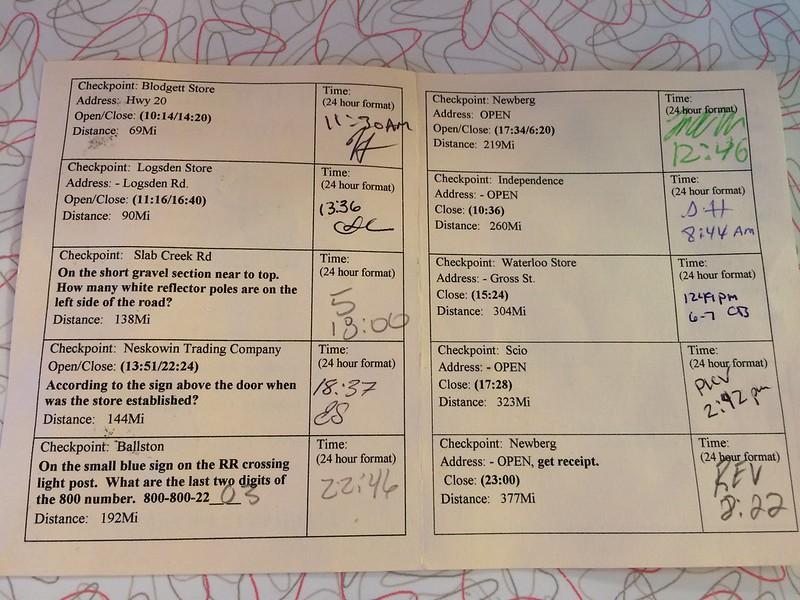 Checkpoint: Blodgett Store
Address: Hwy 20
Open/Close: (10:14/14:20)
Distance: 69Mi
Time:
(24 hour format)
11:30 AM
Checkpoint: Logsden Store
Address: - Logsden Rd.
Open/Close: (11:16/16:40)
Distance: 90Mi
Time:
(24 hour format)
13:36
Checkpoint: Slab Creek Rd
On the short gravel section near to top.
How many white reflector poles are on the
left side of the road?
Distance: 138Mi
Time:
(24 hour format)
5
18:00
Checkpoint: Neskowin Trading Company
Open/Close: (13:51/22:24)
According to the sign above the door when
was the store established?
Distance: 144Mi
Time:
(24 hour format)
18:37
ES
Checkpoint: Ballston
On the small blue sign on the RR crossing
light post. What are the last two digits of
the 800 number. 800-800-22 03
Distance: 192Mi
Time:
(24 hour format)
22:46
Checkpoint: Newberg
Address: OPEN
Open/Close: (17:34/6:20)
Distance: 219Mi
Time:
(24 hour format)
12:46
Checkpoint: Independence
Address: - OPEN
Close: (10:36)
Distance: 260Mi
Time:
(24 hour format)
8:44 Am
Checkpoint: Waterloo Store
Address: - Gross St.
Close: (15:24)
Distance: 304Mi
Time:
(24 hour format)
1249pm
6-7
Checkpoint: Scio
Address: - OPEN
Close: (17:28)
Distance: 323Mi
Time:
(24 hour format)
2:42 pm
Checkpoint: Newberg
Address: - OPEN, get receipt.
Close: (23:00)
Distance: 377Mi
Time:
(24 hour format)
REV
8:22